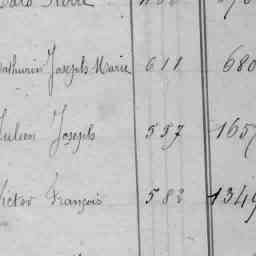 Pierre
athurin Joseph Marie 611 680
Julien Joseph 557 165
Victor François 582 1349